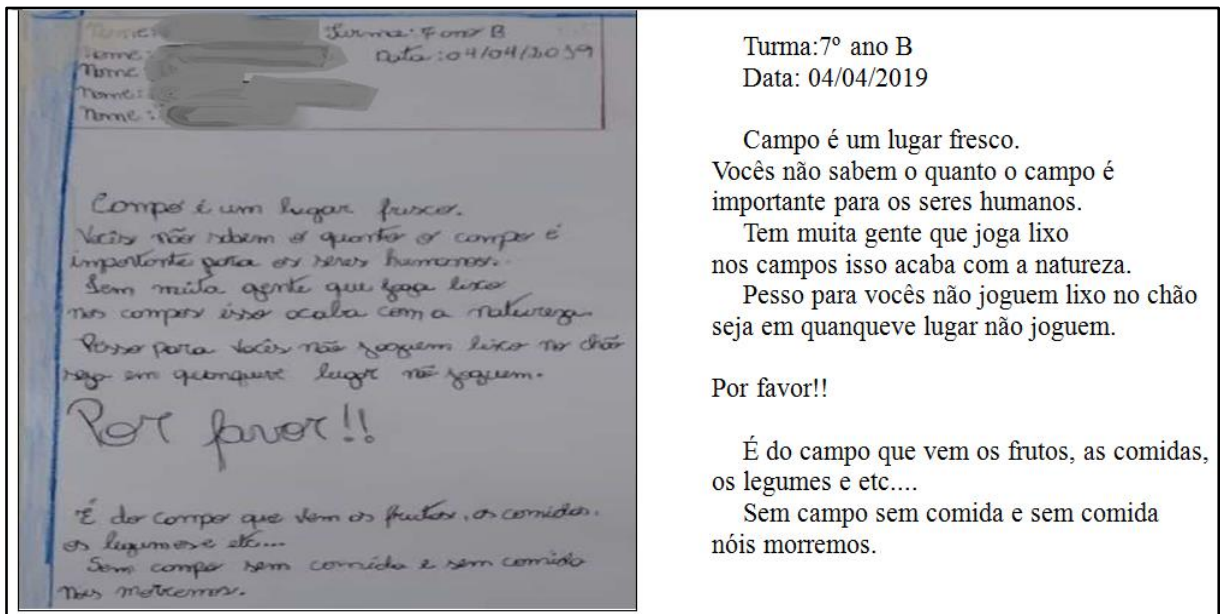 Nome:
Turma: 7 ano B
Nome:
Data: 04/04/2019
Nome:
Nome:
Nome:
Campo é um lugar fresco.
Vocês não sabem o quanto o campo é
importante para os seres humanos.
Tem muita gente que joga lixo
nos campos isso acaba com a natureza.
Pesso para vocês não joguem lixo no chão
seja em quanqueve lugar não joguem.
Por favor!!
É do campo que vem os frutos, as comidas,
os legumes e etc....
Sem campo sem comida e sem comida
nóis morremos.
Turma:7º ano B
Data: 04/04/2019
Campo é um lugar fresco.
Vocês não sabem o quanto o campo é
importante para os seres humanos.
Tem muita gente que joga lixo
nos campos isso acaba com a natureza.
Pesso para vocês não joguem lixo no chão
seja em quanqueve lugar não joguem.
Por favor!!
É do campo que vem os frutos, as comidas,
os legumes e etc....
Sem campo sem comida e sem comida
nóis morremos.